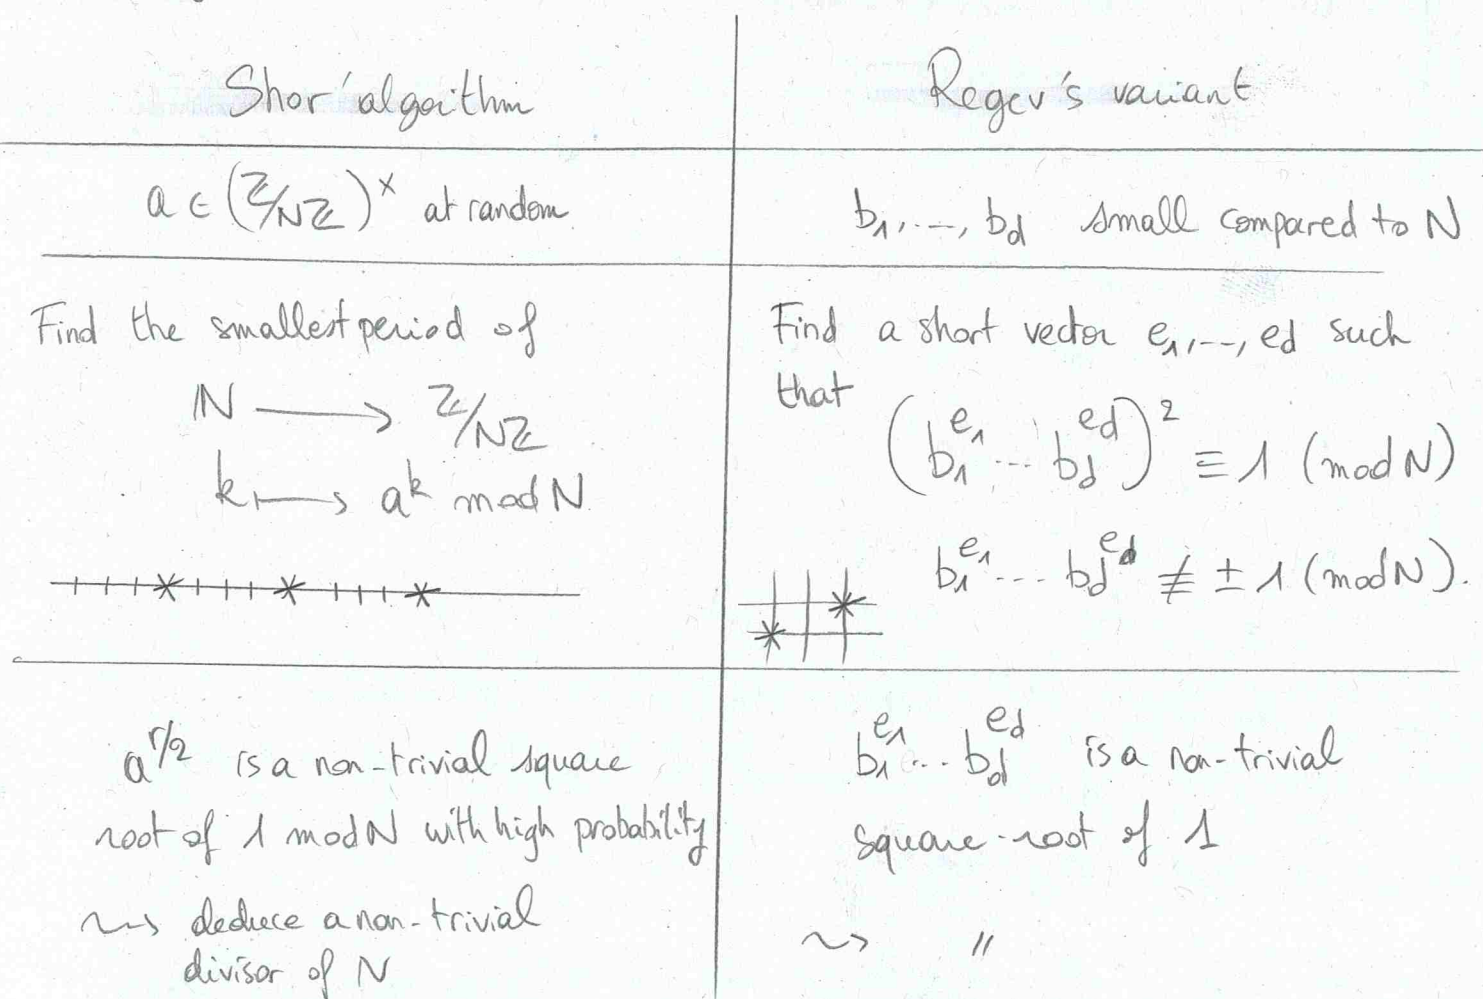 Shor'algorithm
a ∈ (ℤ/Nℤ)^× at random
Find the smallest period of
ℕ ⟶ ℤ/Nℤ
k ⟼ a^k mod N
a^{r/2} is a non-trivial square
root of 1 mod N with high probability
⇝ deduce a non-trivial
divisor of N
Regev's variant
b_1, ..., b_d small compared to N
Find a short vector e_1, ..., e_d such
that
(b_1^{e_1} ... b_d^{e_d})^2 ≡ 1 (mod N)
b_1^{e_1} ... b_d^{e_d} ≢ ± 1 (mod N).
b_1^{e_1} ... b_d^{e_d} is a non-trivial
square-root of 1
⇝ "